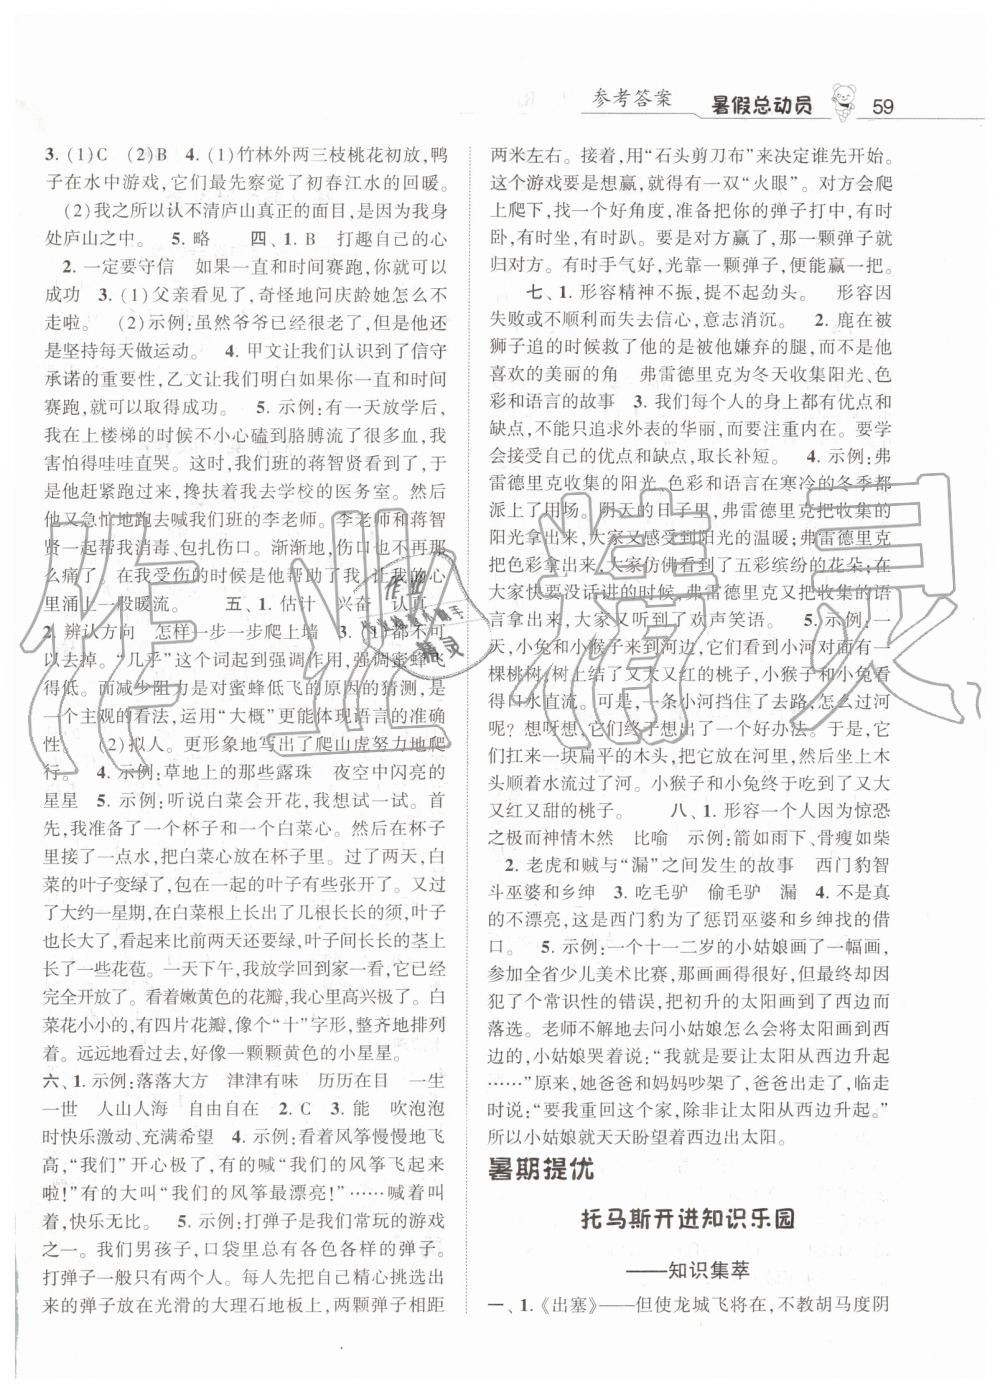 参考答案 暑假总动员 59
3. (1)C　(2)B　4. (1)竹林外两三枝桃花初放,鸭
子在水中游戏,它们最先察觉了初春江水的回暖。
(2)我之所以认不清庐山真正的面目,是因为我身
处庐山之中。　5. 略　四、1. B　打趣自己的心
2. 一定要守信　如果一直和时间赛跑,你就可以
成功　3. (1)父亲看见了,奇怪地问庆龄她怎么不
走啦。　(2)示例:虽然爷爷已经很老了,但他还
是坚持每天做运动。　4. 甲文让我们认识到了信守
承诺的重要性,乙文让我们明白如果你一直和时间
赛跑,就可以取得成功。　5. 示例:有一天放学后,
我在上楼梯的时候不小心磕到胳膊流了很多血,我
害怕得哇哇直哭。这时,我们班的蒋智贤看到了,于
是他赶紧跑过来,搀扶着我去学校的医务室。然后
他又急忙地跑去喊我们班的李老师。李老师和蒋智
贤一起帮我消毒、包扎伤口。渐渐地,伤口也不那
么痛了。在我受伤的时候是他帮助了我,让我的心
里涌上一股暖流。　五、1. 估计　兴奋　认真
2. 辨认方向　怎样一步一步爬上墙　3. (1)都不可
以去掉。“几乎”这个词起到强调作用,强调蜜蜂飞
得低。而减少阻力是对蜜蜂低飞的原因的猜测,是
一个主观的看法,运用“大概”更能体现语言的准确
性。　(2)拟人。更形象地写出了爬山虎努力地爬
行。　4. 示例:草地上的那些露珠　夜空中闪亮的
星星　5. 示例:听说白菜会开花,我想试一试。首
先,我准备了一个杯子和一个白菜心。然后在杯子
里接了一点水,把白菜心放在杯子里。过了两天,白
菜的叶子变绿了,包在一起的叶子有些张开了。又过
了大约一星期,在白菜根上长出了几根长长的须,叶子
也长大了,看起来比前两天还要绿,叶子中间长的茎上
长了一些花苞。一天下午,我回到家一看,它已经
完全开放了。看着嫩黄色的花瓣,我心里高兴极了。白
菜花小小的,有四片花瓣,像个“十”字形,整齐地排列
着。远远地看过去,好像一颗颗黄色的小星星。
六、1. 示例:落落大方　津津有味　历历在目　一生
一世　人山人海　自由自在　2. C　3. 能　吹泡泡
时快乐激动、充满希望　4. 示例:看着风筝慢慢地飞
高,“我们”开心极了,有的喊“我们的风筝飞起来
啦!”有的大叫“我们的风筝最漂亮!”……喊着叫
着,快乐无比。　5. 示例:打弹子是我们常玩的游戏
之一。我们男孩子,口袋里总有各色各样的弹子。
打弹子一般只有两个人。每人把自己精心挑选出
来的弹子放在光滑的大理石地板上,两颗弹子相距
两米左右。接着,用“石头剪刀布”来决定谁先开始。
这个游戏要是想赢,就得有一双“火眼”。有时会爬
上爬下,找一个好角度,准备把你的弹子打中,有时
卧,有时坐,有时趴。要是对方赢了,那一颗弹子就
归对方。有时手气好,光靠一颗弹子,便能赢一把。
七、1. 形容精神不振,提不起劲头。　形容因
失败或不顺利而失去信心,意志消沉。　2. 鹿在被
狮子追的时候救了他的是被她嫌弃的腿,而不是他
喜欢的美丽的角　弗雷德里克为冬天收集阳光、色
彩和语言的故事　3. 我们每个人的身上都有优点和
缺点,不能只追求外表的华丽,而要注重内在。要学
会接受自己的优点和缺点,取长补短。　4. 示例:弗
雷德里克收集的阳光、色彩和语言在寒冷的冬季都
派上了用场。阴天的日子里,弗雷德里克把收集的
阳光拿出来,大家又感受到了阳光的温暖;弗雷德里克
把收集的色彩拿出来,大家仿佛看到了五彩缤纷的花朵;在大家
快要没话讲的时候,弗雷德里克拿出收集的语
言拿出来,大家又听到了欢声笑语。　5. 示例:一
天,小兔和小猴子来到河边,它们看到小河对面有一
棵桃树,树上结了又大又红的桃子,小猴子和小兔看
得口水直流。可是,一条小河挡住了去路,怎么过河
呢?想呀想,它们终于想出了一个好办法。于是,它
们扛来一块扁平的木头,把它放在河里,然后坐上木
头顺着水流过了河。小猴子和小兔一起吃到了又大
又红又甜的桃子。　八、1. 形容一个人因为惊恐
之极而神情木然　比喻　示例:箭如雨下、骨瘦如柴
2. 老虎和贼与“漏”之间发生的故事　西门豹智
斗巫婆和乡绅　3. 吃毛驴　偷毛驴　漏　4. 不是真
的不漂亮,这是西门豹为了惩罚巫婆和乡绅找的借
口。　5. 示例:一个十一二岁的小姑娘画了一幅画,
参加全省少儿美术比赛,那画画得很好,但是却因
犯了个常识性的错误,把初升的太阳画到了西边而
落选。老师不解地去问小姑娘怎么会将太阳画到西
边,小姑娘哭着说:“我是要让太阳从西边升起
……”原来,她爸爸和妈妈吵架了,爸爸出走了,走
时说:“要我重回这个家,除非让太阳从西边升起。”
所以小姑娘就天天盼望着西边出太阳。
暑期提优
托马斯开进知识乐园
——知识集萃
一、1.《出塞》——但使龙城飞将在,不教胡马度阴